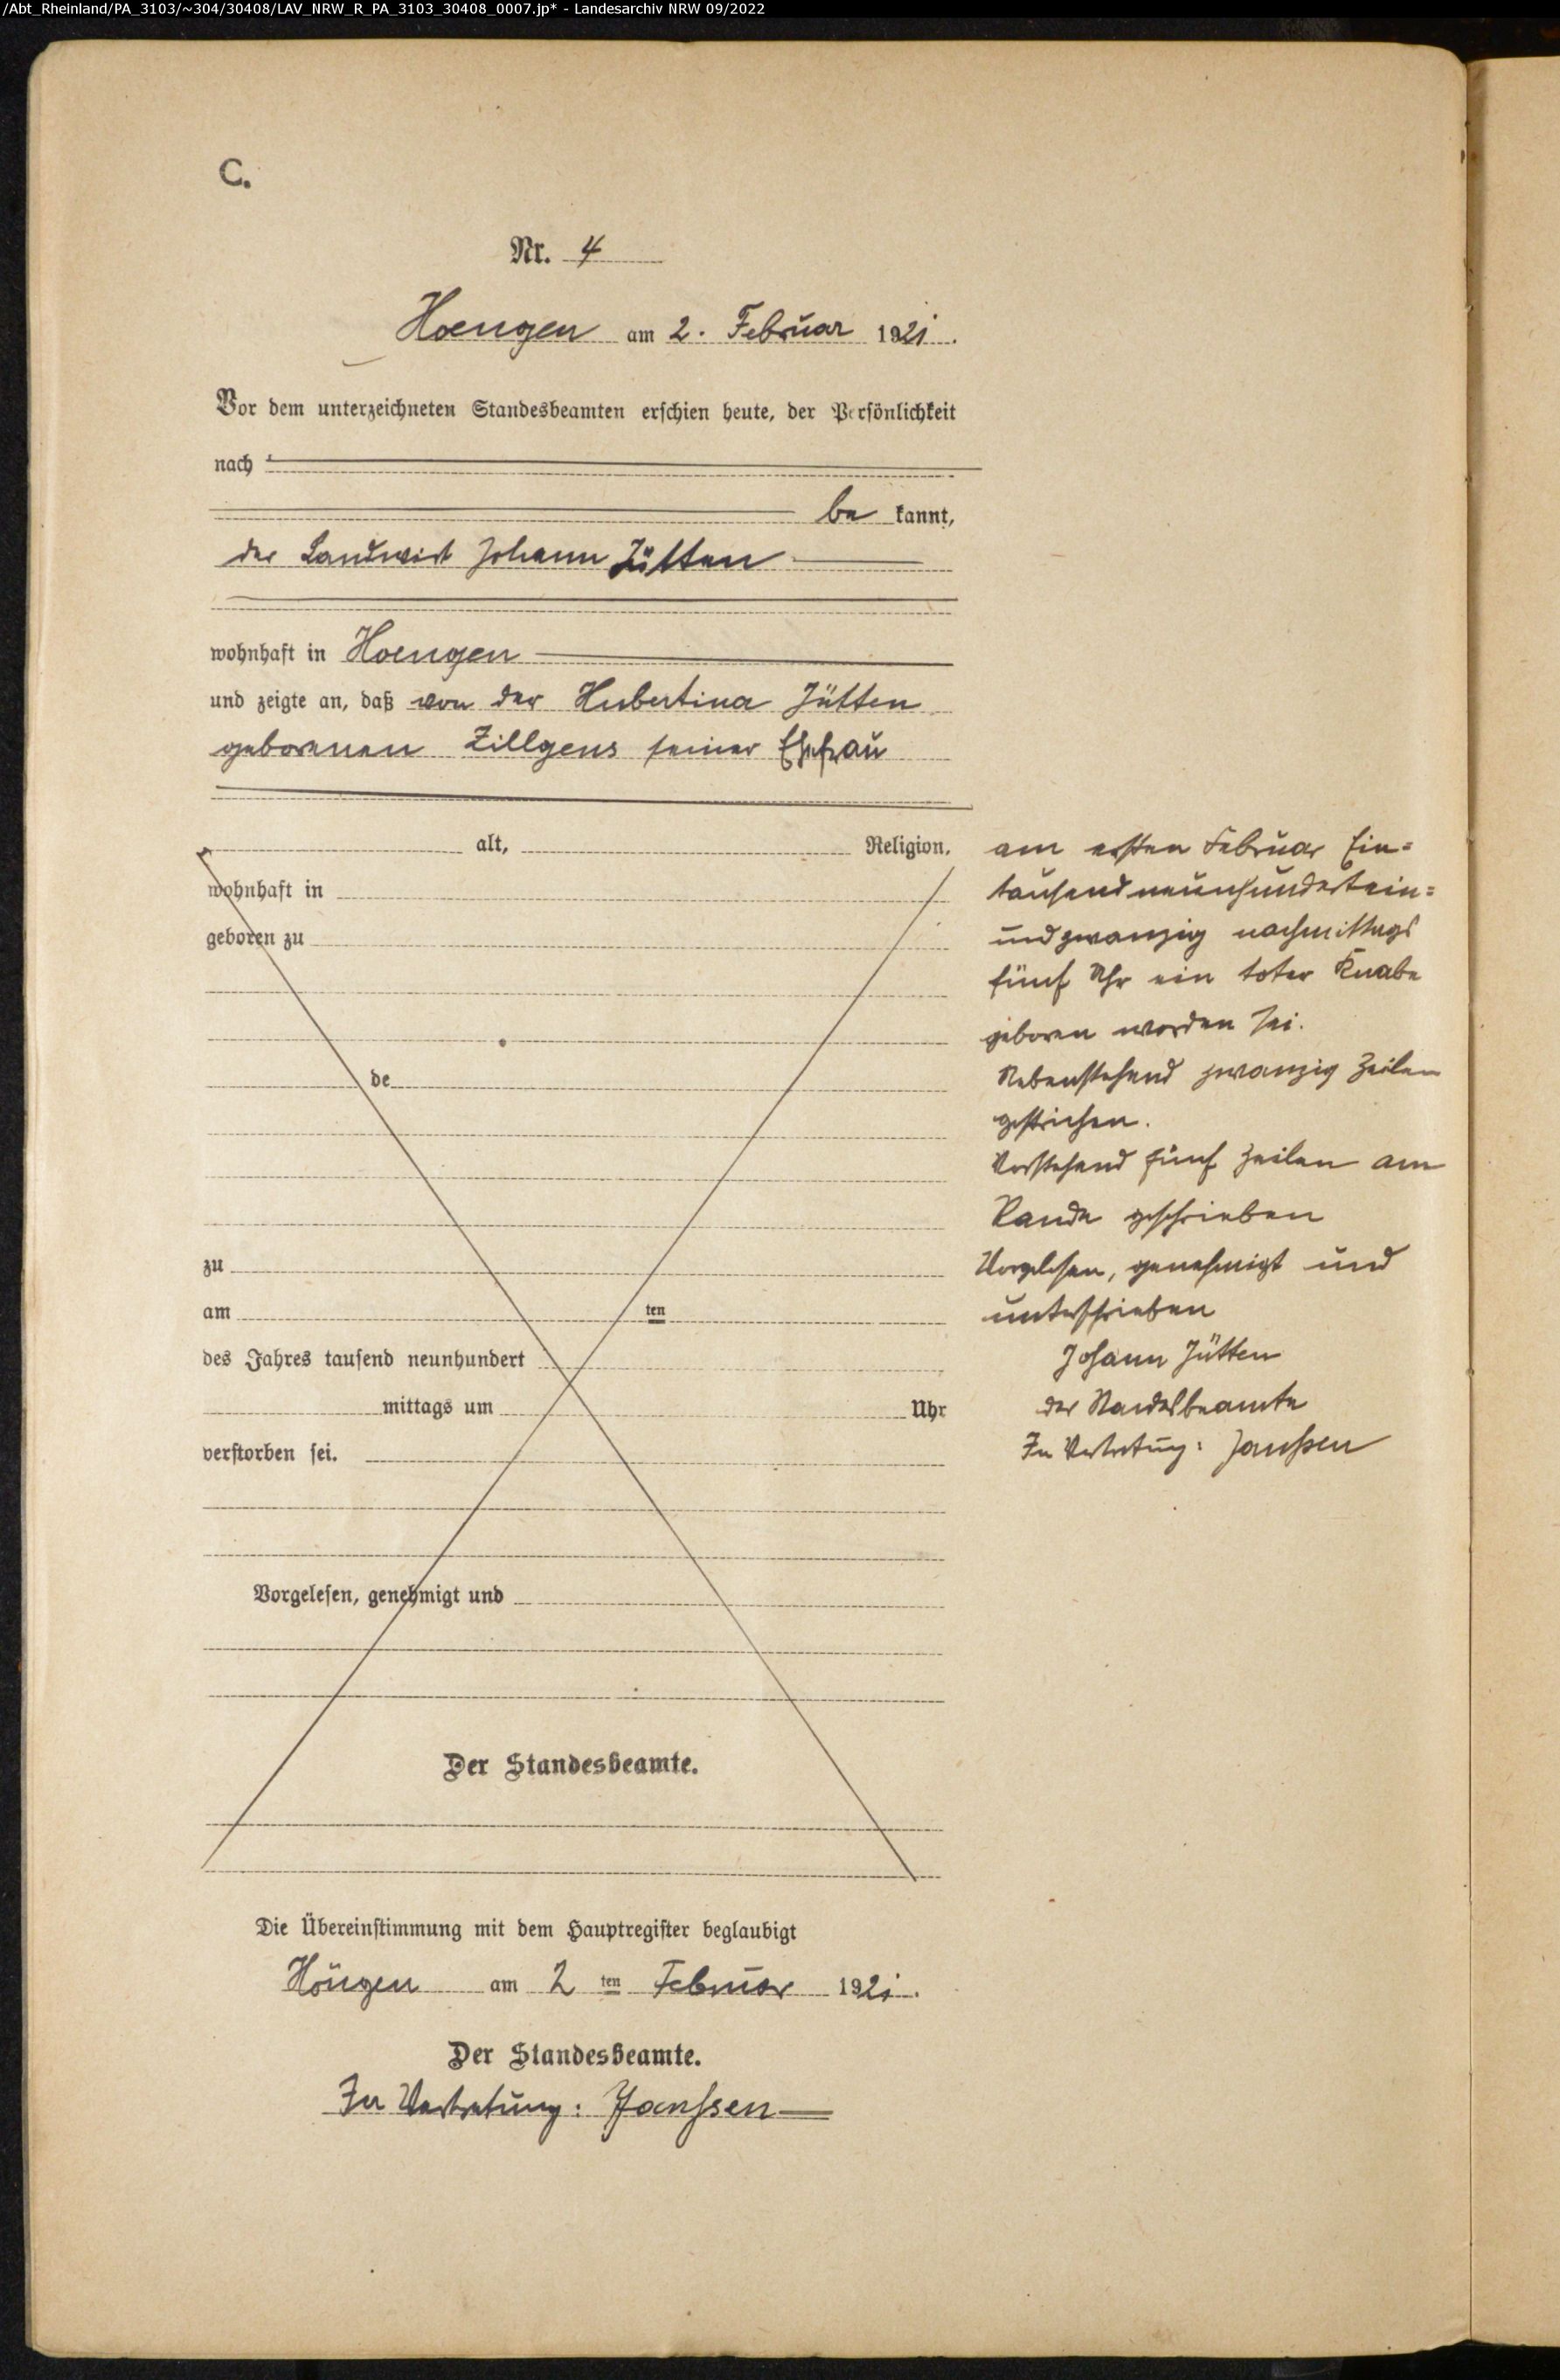 /Abt_Rheinland/PA_3103/~304/30408/LAV_NRW_R_PA_3103_30408_0007.jp* - Landesarchiv NRW 09/2022
C.
Nr. 4
Hoengen am 2. Februar 1921.
Vor dem unterzeichneten Standesbeamten erschien heute, der Persönlichkeit
nach
be kannt,
der Landwirt Johann Jütten
wohnhaft in Hoengen
und zeigte an, daß von der Hubertina Jütten
geborenen Zillgens seiner Ehefrau
alt, Religion,
wohnhaft in
geboren zu
de
zu
am ten
des Jahres tausend neunhundert
mittags um Uhr
verstorben sei.
Vorgelesen, genehmigt und
Der Standesbeamte.
am ersten Februar Ein=
tausendneunhundertein=
undzwanzig nachmittags
fünf Uhr ein toter Knabe
geboren worden sei.
Nebenstehend zwanzig Zeilen
gestrichen.
Vorstehend fünf Zeilen am
Rande geschrieben
Vorgelesen, genehmigt und
unterschrieben
Johann Jütten
der Standesbeamte
In Vertretung: Janssen
Die Übereinstimmung mit dem Hauptregister beglaubigt
Höngen am 2 ten Februar 1921.
Der Standesbeamte.
In Vertretung: Janssen